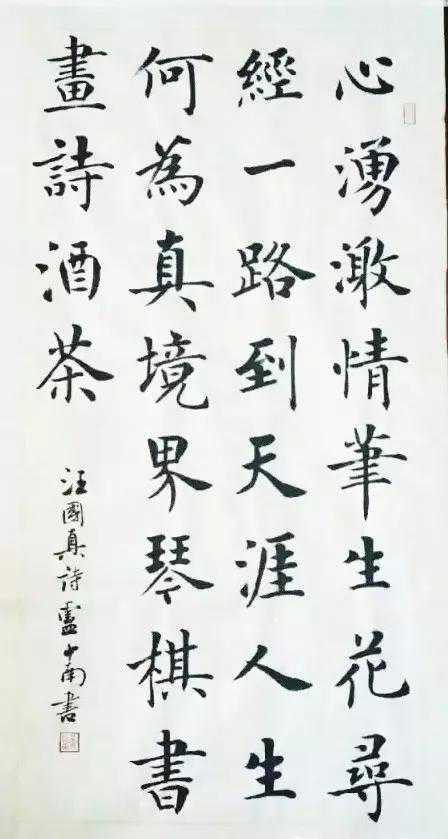 心湧激情筆生花尋
經一路到天涯人生
何為真境界琴棋書
畫詩酒茶
汪國真詩盧中南書